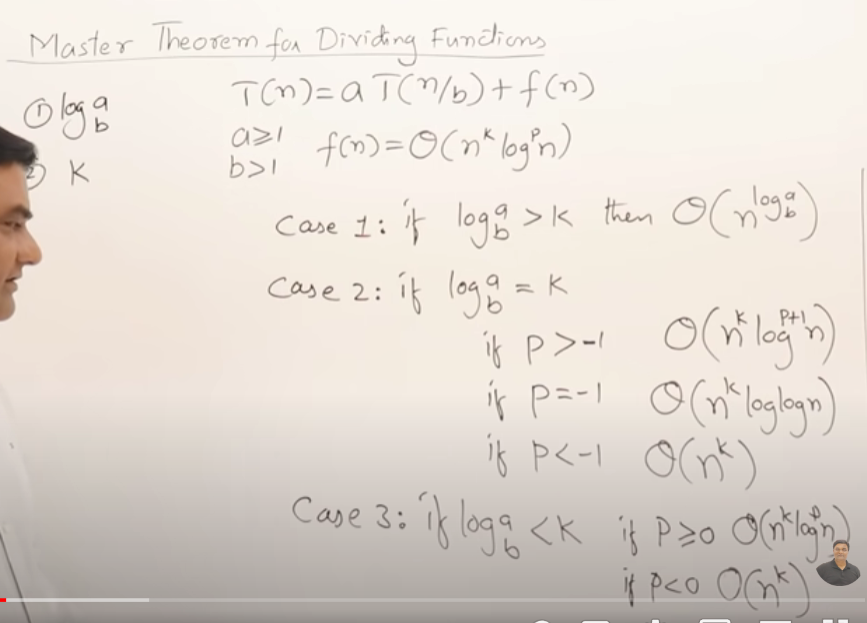 Master Theorem for Dividing Functions
① log_b^a
T(n) = a T(n/b) + f(n)
a≥1
b>1
f(n) = O(n^k log^p n)
② K
Case 1: if log_b^a > k then O(n^(log_b^a))
Case 2: if log_b^a = k
if P > -1 O(n^k log^(p+1) n)
if P = -1 O(n^k loglogn)
if P < -1 O(n^k)
Case 3: if log_b^a < k if P ≥ 0 O(n^k log^p n)
if P < 0 O(n^k)